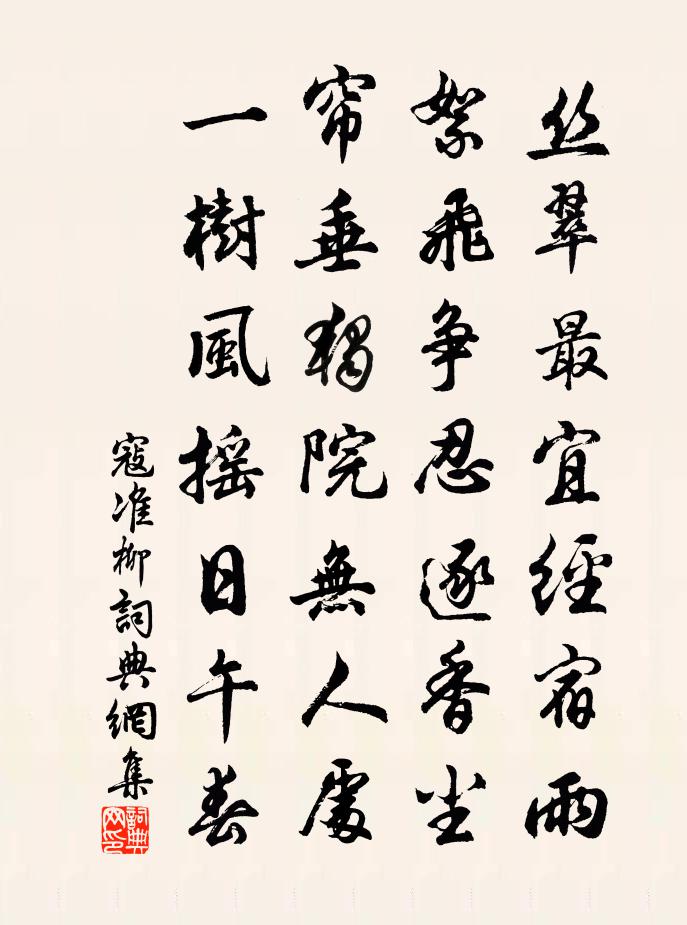 丝翠最宜經宿雨
絮飛争忍逐香尘
帘垂独院無人處
一樹風摇日午春
寇准柳詞典網集
詞典网印